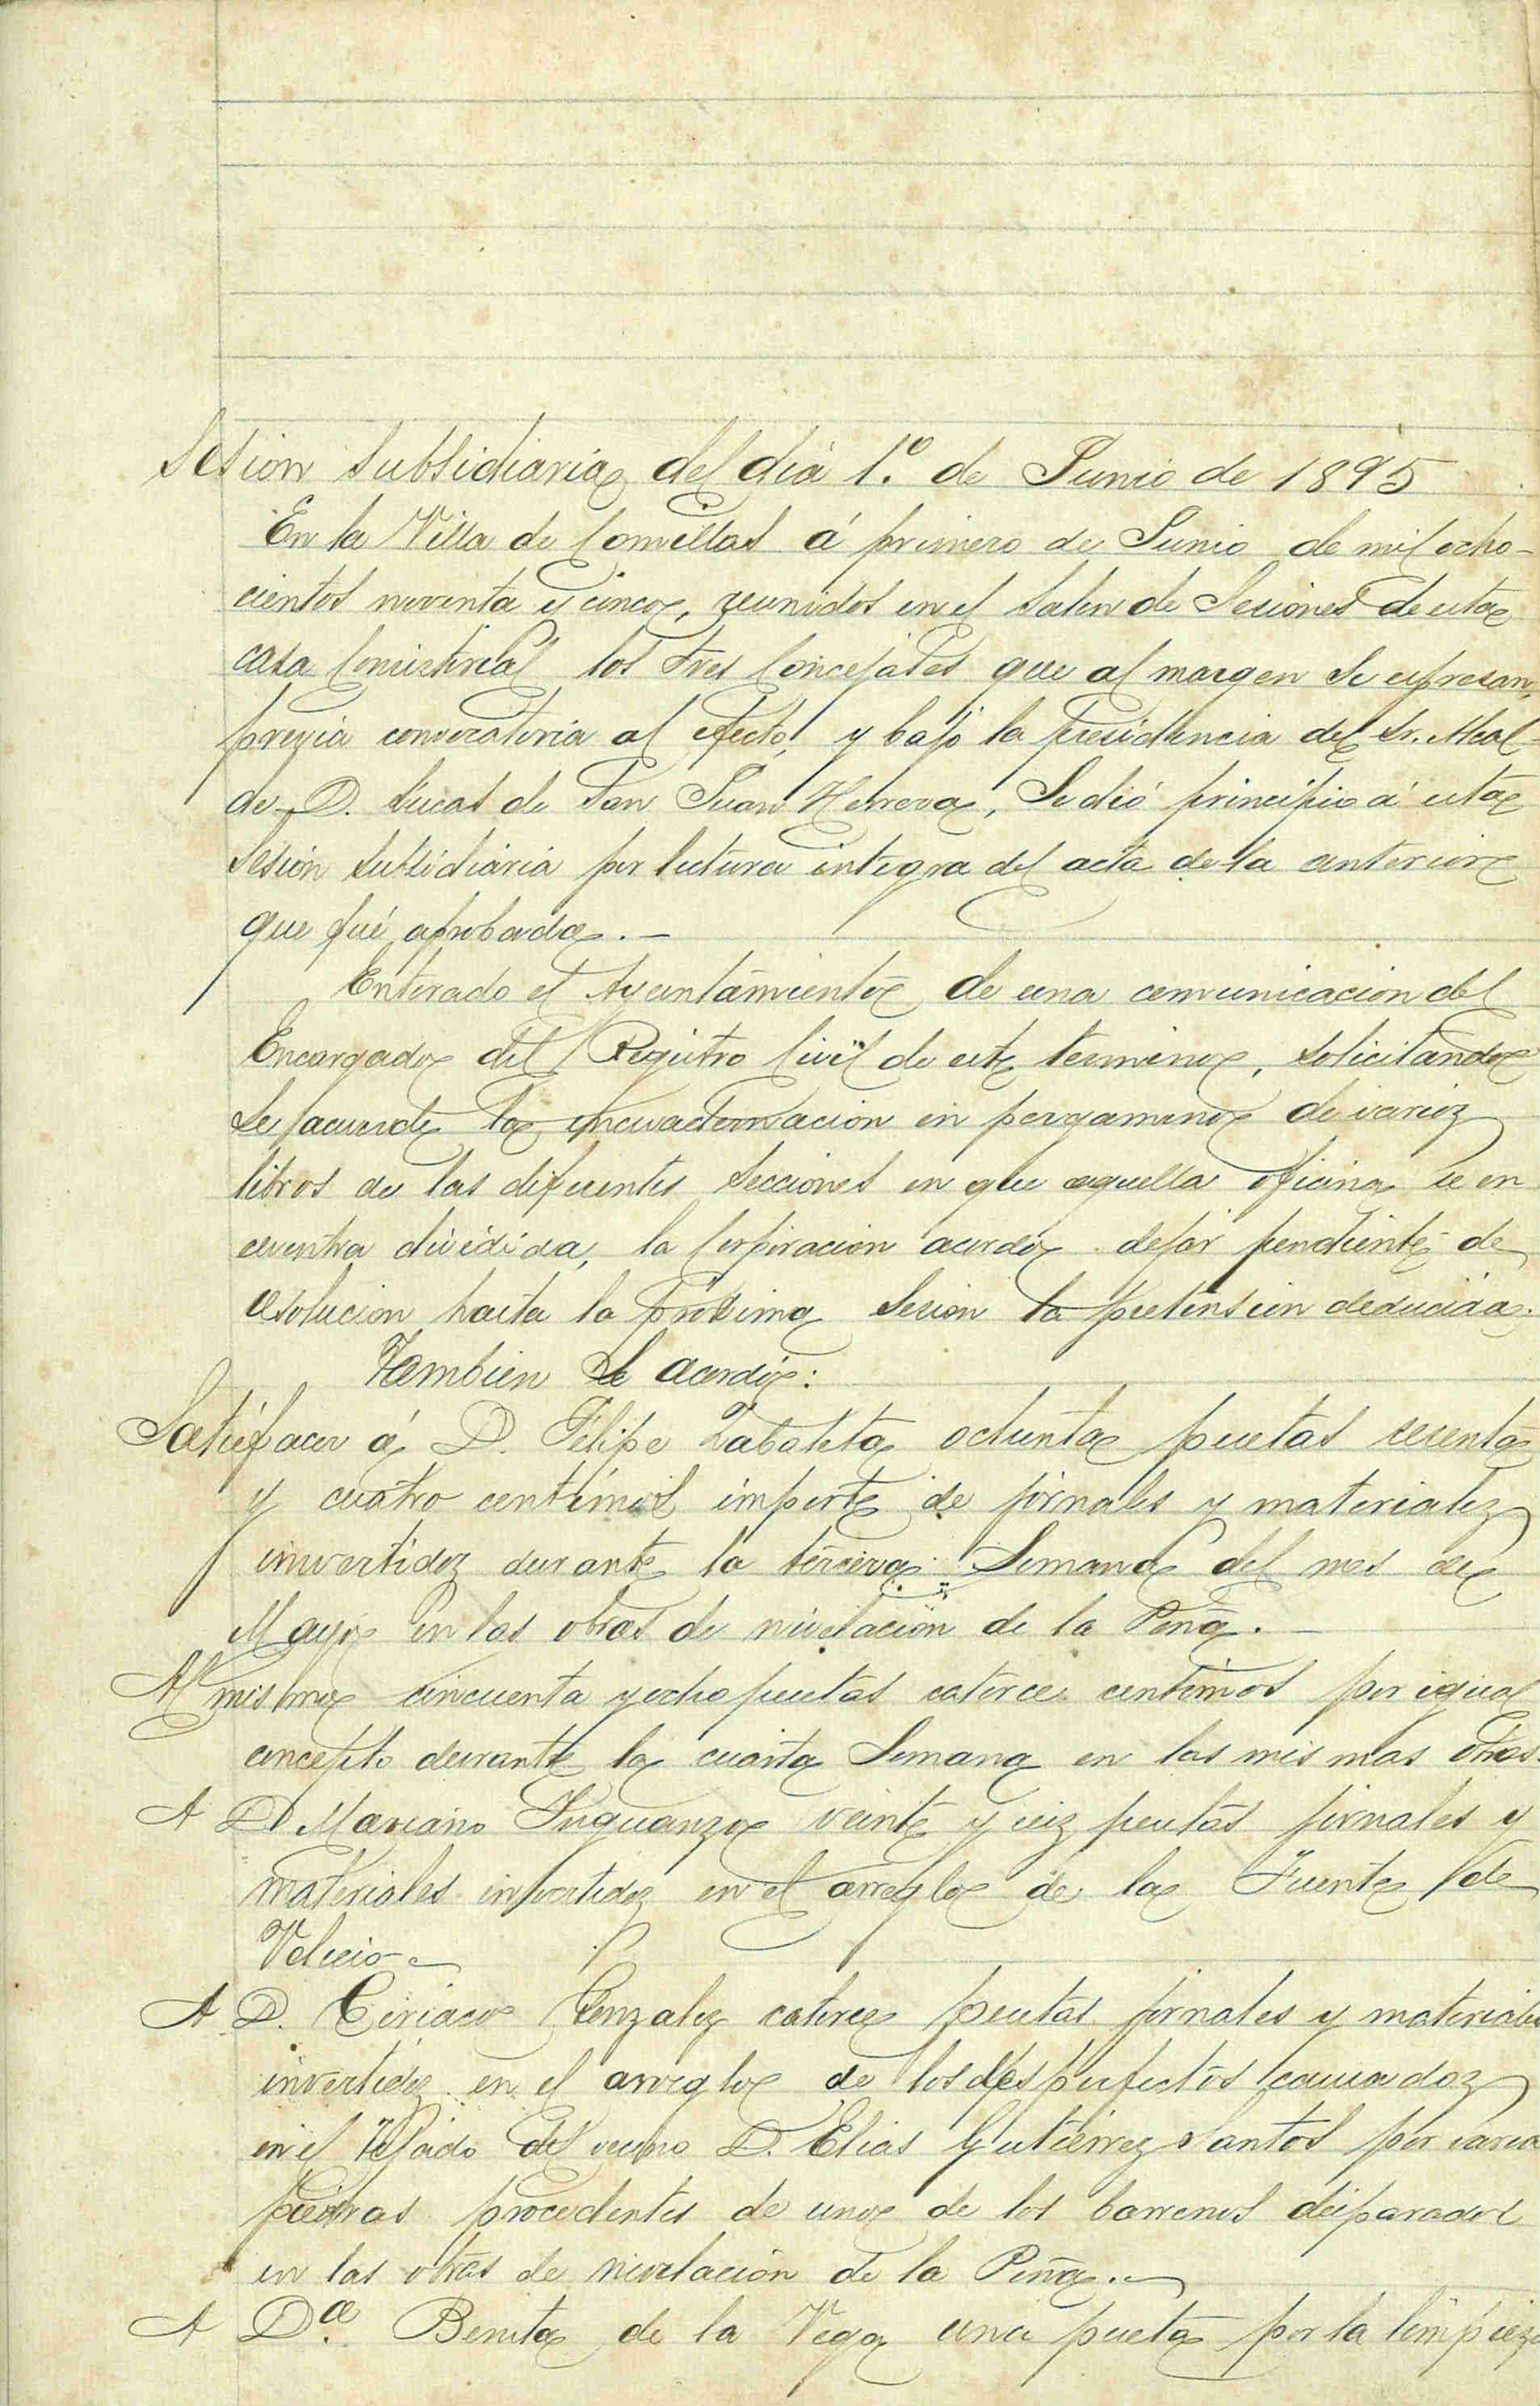 Sesion subsidiaria del dia 1.º de Junio de 1895
En la Villa de Comillas á primero de Junio de mil ocho-
cientos noventa y cinco, reunidos en el Salon de Sesiones de esta
casa Consistorial los tres Concejales que al margen se espresan,
previa convocatoria al efecto, y bajo la presidencia del Sr. Alcal-
de D. Lucas de San Juan Herrera, Se dió principio á esta
Sesión subsidiaria por lectura integra del acta de la anterior
que fué aprobada.—
Enterado el Ayuntamiento de una comunicacion del
Encargado del Registro Civil de este termino, solicitando
se acuerde la encuadernacion en pergamino de varios
libros de las diferentes Secciones en que aquella oficina se en
cuentra dividida, la Corporacion acordó dejar pendiente de
resolucion hasta la próxima Sesion la pretension deducida.
Tambien se acordó:
Satisfacer á D. Felipe Zabaleta ochenta pesetas sesenta
y cuatro centimos importe de jornales y materiales
invertidos durante la tercera Semana del mes de
Mayo en las obras de nivelacion de la Peña.—
Al mismo cincuenta y ocho pesetas catorce centimos por igual
concepto durante la cuarta Semana en las mismas obras.
A D. Mariano Inguanzo veinte y seis pesetas jornales y
materiales invertidos en el arreglo de la Fuente de
Velecio
A D. Ciriaco Gonzalez catorce pesetas jornales y materiales
invertidos en el arreglo de los desperfectos causados
en el tejado del vecino D. Elias Gutierrez Santos por varias
piedras procedentes de uno de los barrenos disparados
en las obras de nivelacion de la Peña.
A D.ª Benita de la Vega una peseta por la limpieza